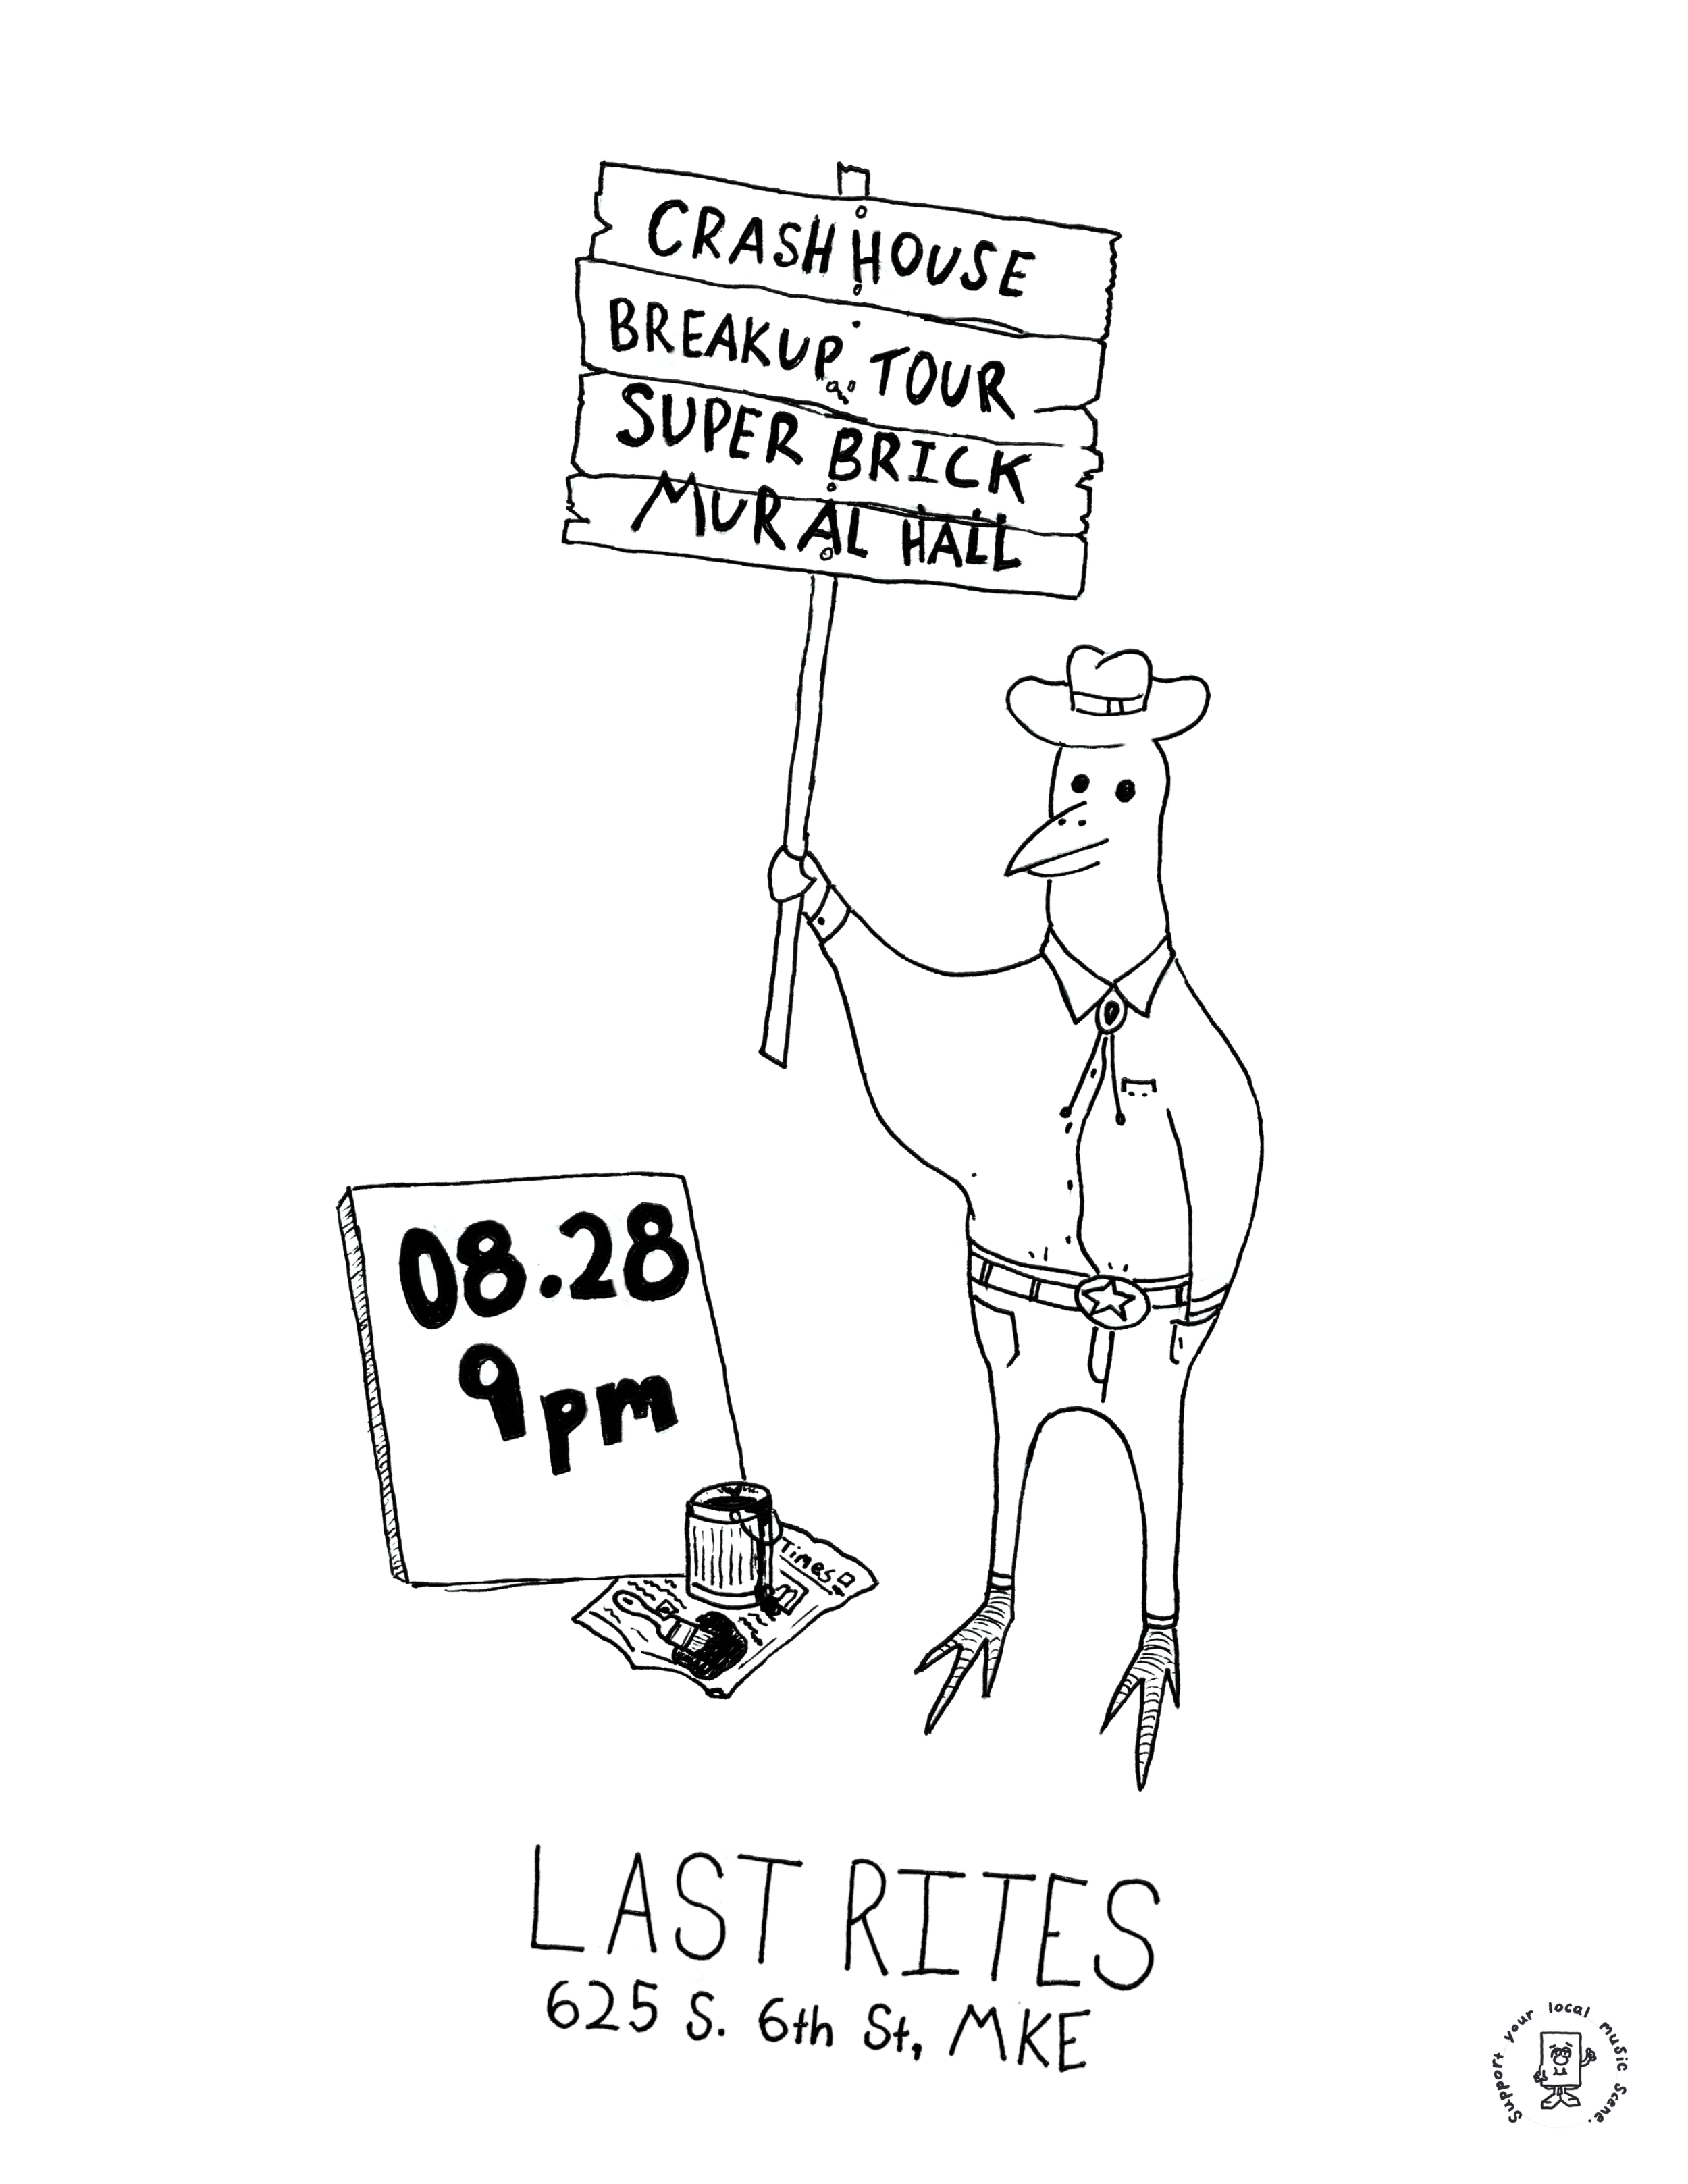 CRASH HOUSE
BREAKUP TOUR
SUPER BRICK
MURAL HALL
08.28
9pm
Times
LAST RITES
625 S. 6th St, MKE
Support your local music scene.